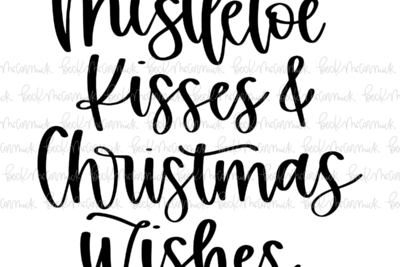 Mistletoe
Kisses &
Christmas
Wishes